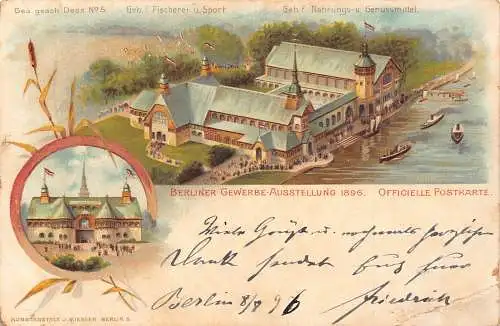 Ges. gesch. Dess. No 5.
Geb. f. Fischerei u. Sport.
Geb. f. Nahrungs- u. Genussmittel.
BERLINER GEWERBE-AUSSTELLUNG 1896. OFFICIELLE POSTKARTE.
Viele Grüße u. nochmals herzlichen
Dank sendet Euch Euer
Berlin 8/8 96 Friedrich
KUNSTANSTALT J. MIESLER BERLIN S.